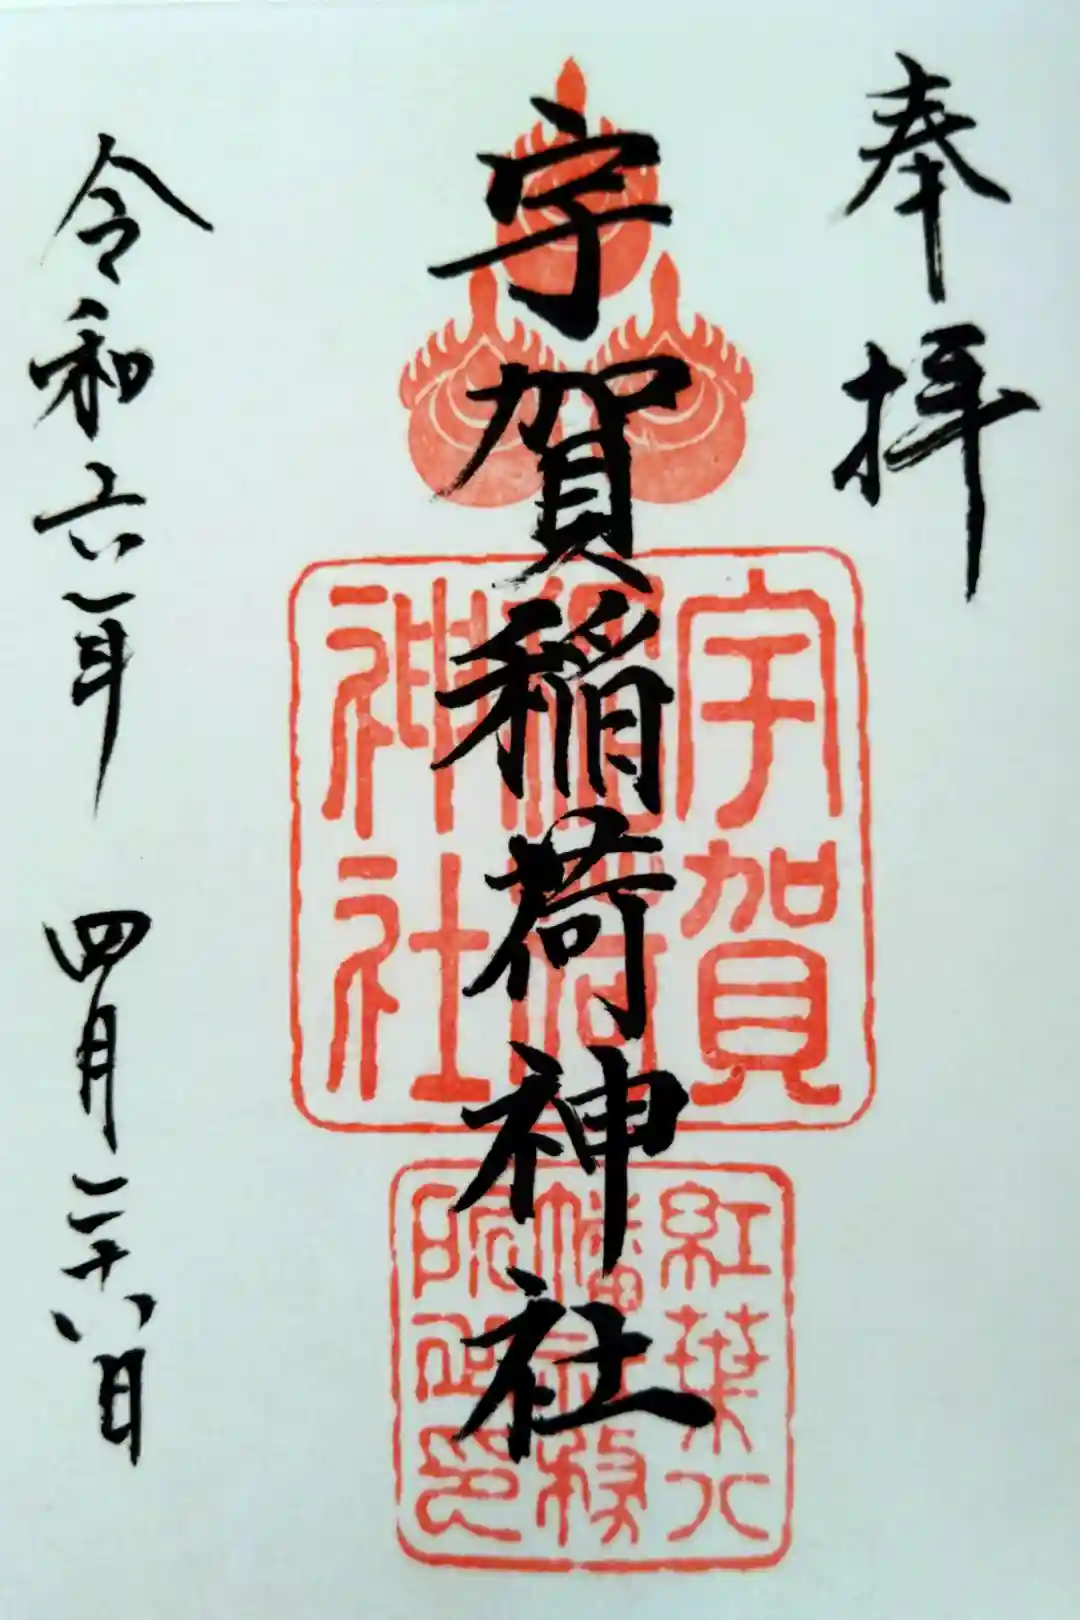 奉拝
宇賀稲荷神社
令和六年 四月二十八日
宇賀
稲荷
神社
紅葉八
幡